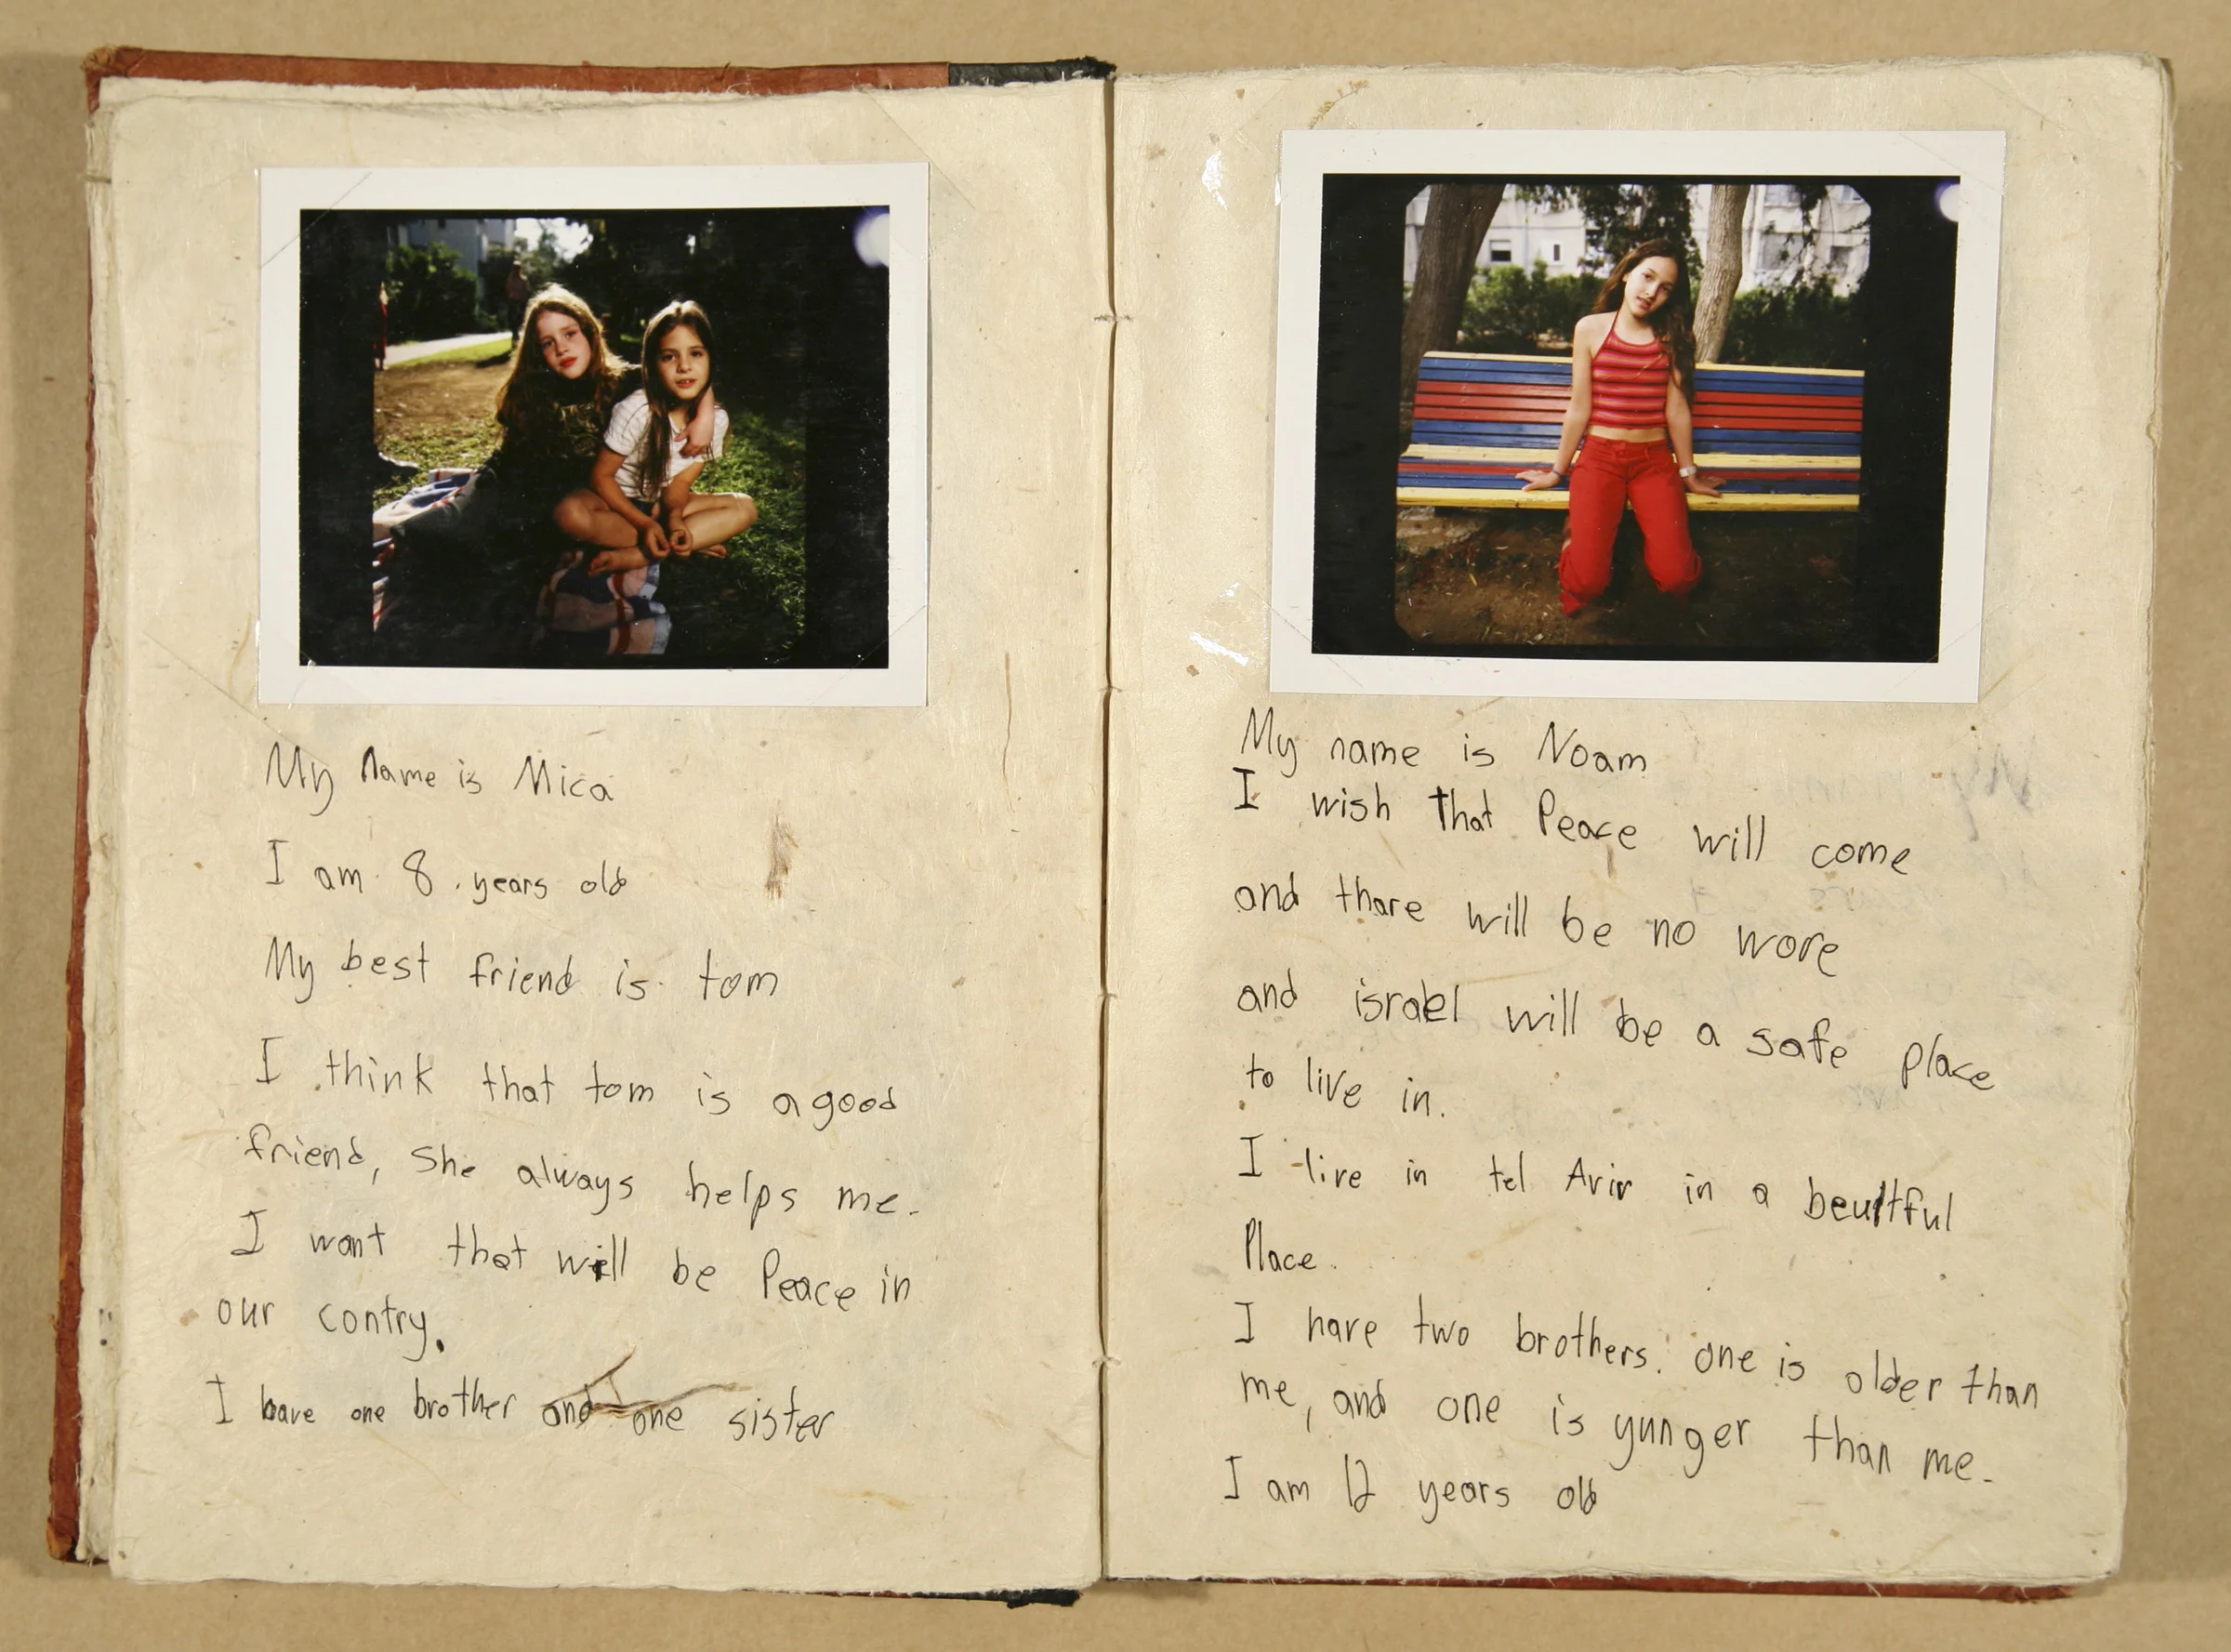 My Name is Mica
I am 8 years old
My best friend is tom
I think that tom is a good
friend, She always helps me.
I want that will be Peace in
our contry.
I have one brother and one sister
My name is Noam
I wish that Peace will come
and thare will be no wore
and israel will be a safe place
to live in.
I live in tel Aviv in a beutful
Place.
I have two brothers. one is older than
me, and one is yunger than me.
I am 12 years old